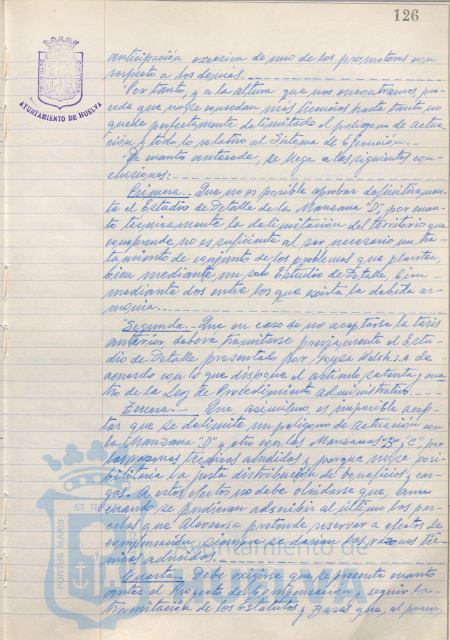 126
AYUNTAMIENTO DE HUELVA
anticipación excesiva de uno de los promotores con
respecto a los demás.
Por tanto, y a la altura que nos encontramos, pro-
cede que no se concedan más licencias hasta tanto no
quede perfectamente delimitado el polígono de actua-
ción y todo lo relativo al Sistema de Ejecución.
De cuanto antecede, se llega a las siguientes con-
clusiones:
Primera.- Que no es posible aprobar definitivamen-
te el Estudio de Detalle de la Manzana "D", por cuan-
to técnicamente la delimitación del territorio que
comprende no es suficiente al ser necesario un tra-
tamiento de conjunto de los problemas que plantea,
bien mediante un solo Estudio de Detalle, bien
mediante dos entre los que exista la debida ar-
monía.
Segunda.- Que en caso de no aceptarse la tesis
anterior, deberá tramitarse previamente el Estu-
dio de Detalle presentado por Welsh, S.A. de
acuerdo con lo que dispone el artículo setenta y cua-
tro de la Ley de Procedimiento Administrativo.
Tercera.- Que asimismo, es imposible acep-
tar que se delimite un polígono de actuación con
la Manzana "D" y otro con las Manzanas "B" y "C" por
las razones técnicas aludidas y porque no se posi-
bilitaría la justa distribución de beneficios y car-
gas. A estos efectos no debe olvidarse que, aun
cuando se pudieran adscribir al último las par-
celas que pretende reservar a efectos de
compensación, siempre se darían las razones téc-
nicas aducidas.
Cuarta.- Debe exigirse que se presente cuanto
antes el Proyecto de Compensación y seguir la
tramitación de los Estatutos y Bases que, al parecer,
PORTUS MARIS
ET TERRAE
Ayuntamiento de